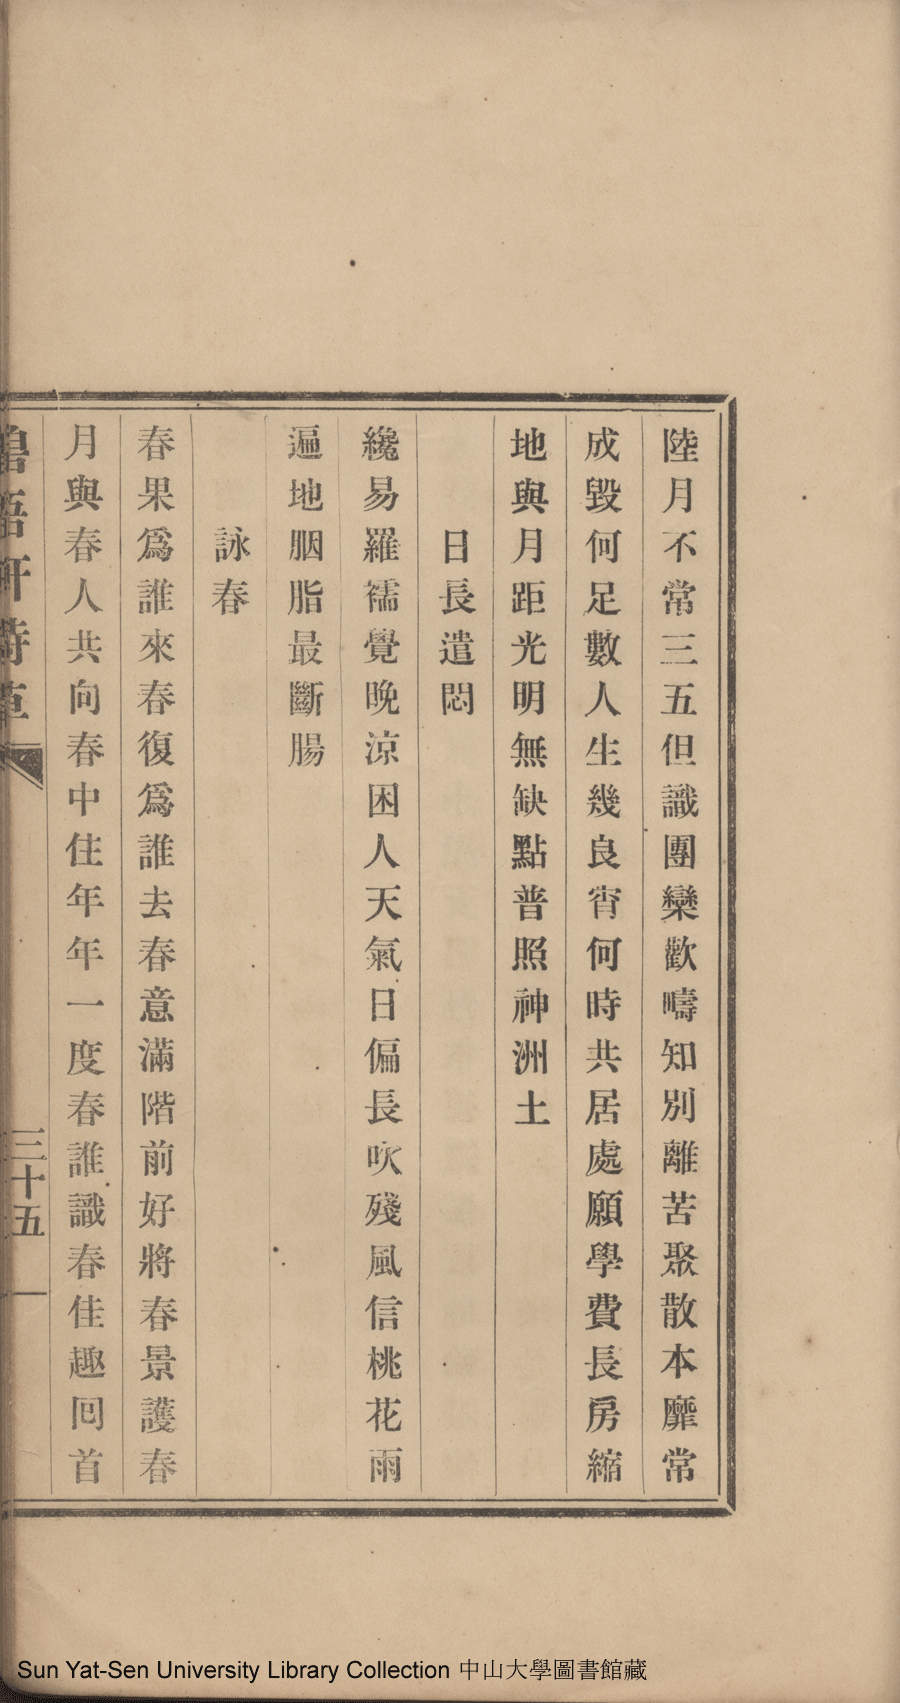 陸月不常三五但識團欒歡疇知別離苦聚散本靡常
成毀何足數人生幾良宵何時共居處願學費長房縮
地與月距光明無缺點普照神洲土
日長遣悶
纔易羅襦覺晚涼困人天氣日偏長吹殘風信桃花雨
遍地胭脂最斷腸
詠春
春果爲誰來春復爲誰去春意滿階前好將春景護春
月與春人共向春中住年年一度春誰識春佳趣回首
三十五
Sun Yat-Sen University Library Collection 中山大學圖書館藏